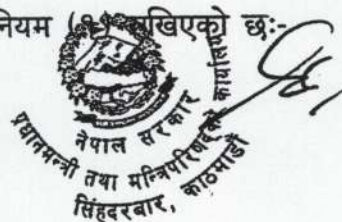 नियम (१) राखिएको छः-
नेपाल सरकार
प्रधानमन्त्री तथा मन्त्रिपरिषद्को कार्यालय
सिंहदरबार, काठमाडौं